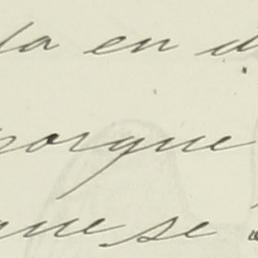 la en
porque
que se